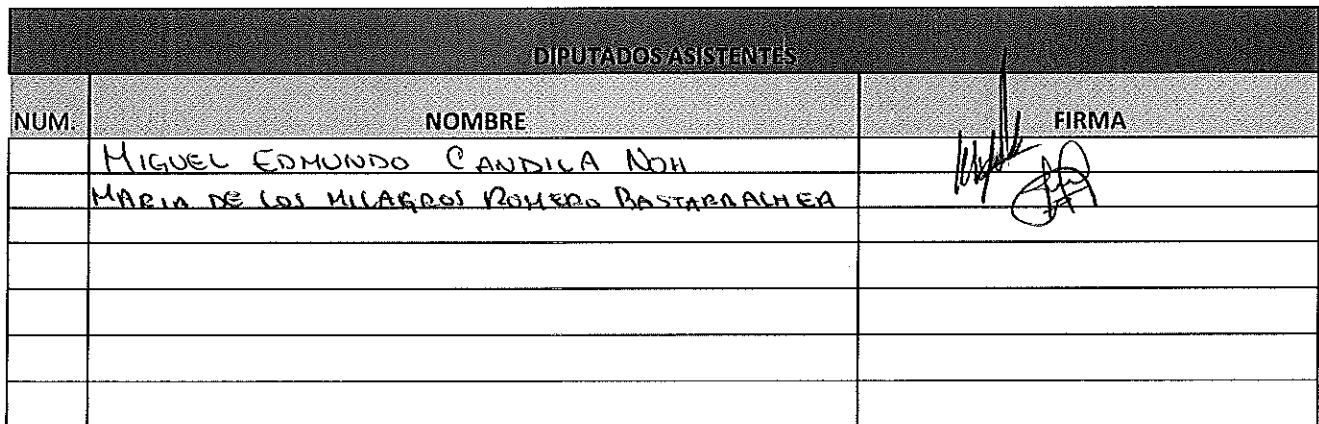 DIPUTADOS ASISTENTES
NUM. NOMBRE FIRMA
MIGUEL EDMUNDO CANDILA NOH
MARIA DE LOS MILAGROS ROMERO BASTARRACHEA